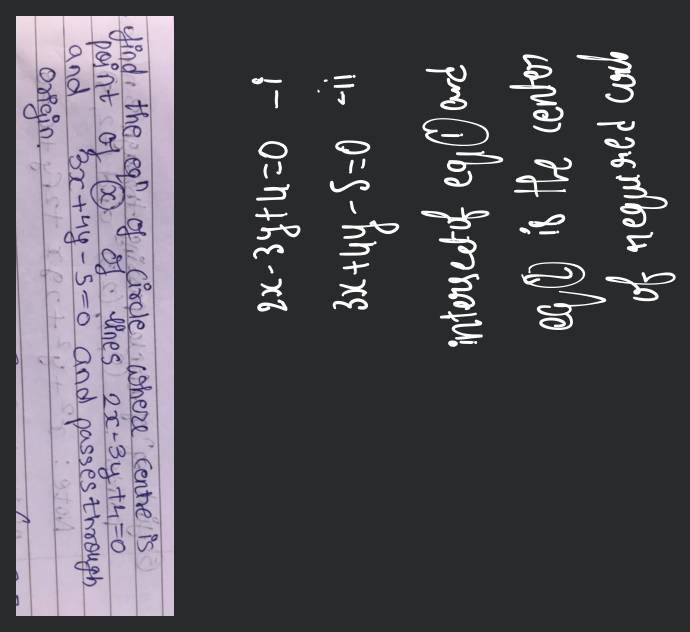 find the eqn of circle where centre is
point of (x) of lines 2x-3y+4=0
and 3x+4y-5=0 and passes through
origin.
2x-3y+4=0 -i
3x+4y-5=0 -ii
intersect of eq ① and
eq ② is the center
of required